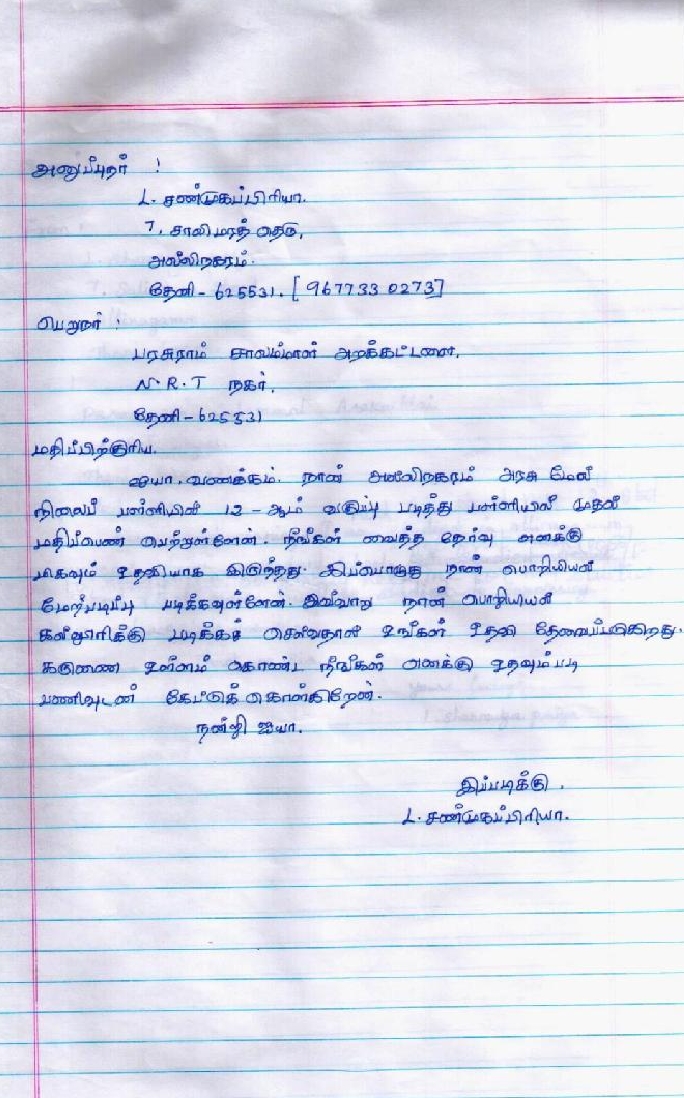 அனுப்புநர் :
L. சண்முகப்பிரியா.
7, சாலிமரத் தெரு,
அல்லிநகரம்.
தேனி - 625531. [967733 0273]
பெறுநர் :
பரசுராம் சாலம்மாள் அறக்கட்டளை,
N.R.T நகர்,
தேனி - 625531
மதிப்பிற்குரிய.
ஐயா. வணக்கம். நான் அல்லிநகரம் அரசு மேல்
நிலைப் பள்ளியில் 12 - ஆம் வகுப்பு படித்து பள்ளியில் முதல்
மதிப்பெண் பெற்றுள்ளேன். நீங்கள் வைத்த தேர்வு எனக்கு
மிகவும் உதவியாக இருந்தது. இப்பொழுது நான் பொறியியல்
மேற்படிப்பு படிக்கவுள்ளேன். இவ்வாறு நான் பொறியியல்
கல்லூரிக்கு படிக்கச் செல்வதால் உங்கள் உதவி தேவைப்படுகிறது.
கருணை உள்ளம் கொண்ட நீங்கள் எனக்கு உதவும்படி
பணிவுடன் கேட்டுக் கொள்கிறேன்.
நன்றி ஐயா.
இப்படிக்கு,
L. சண்முகப்பிரியா.